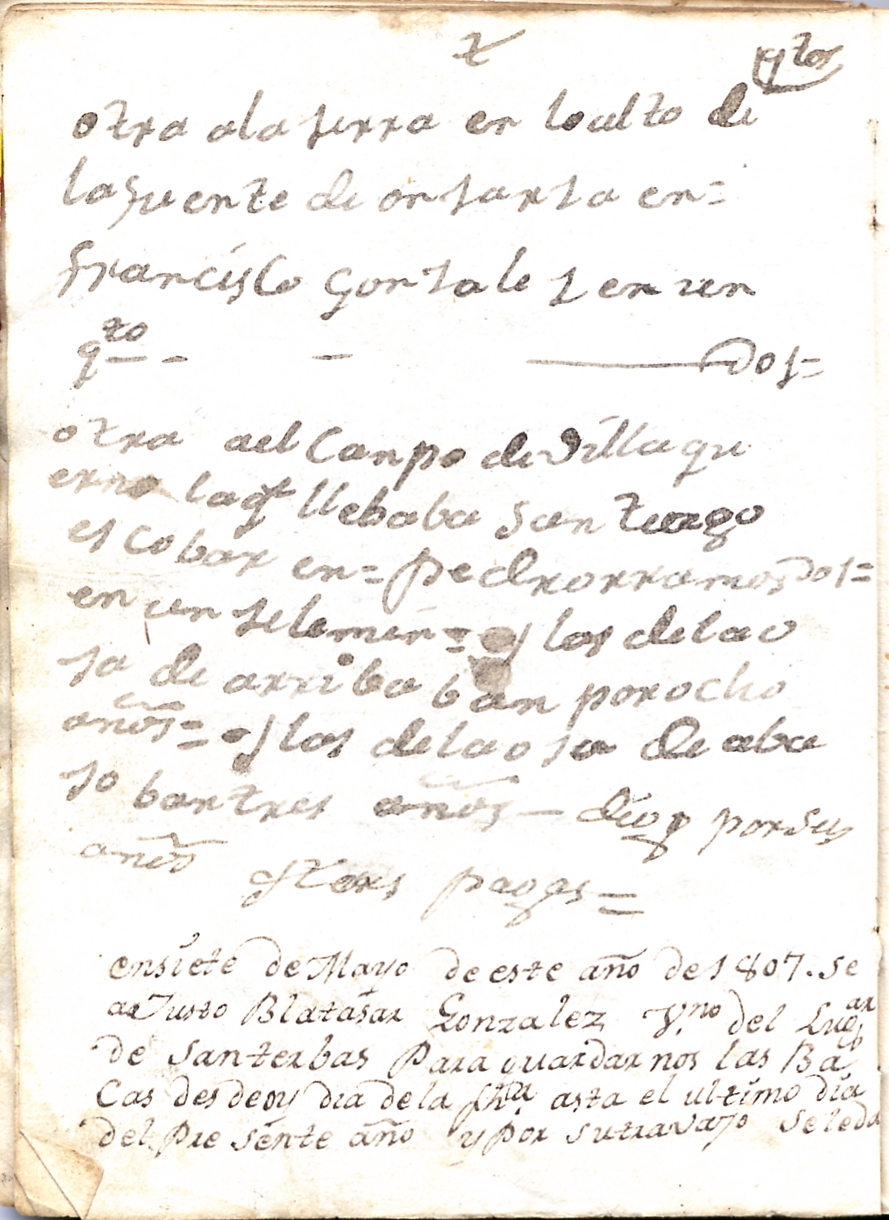 otra ala serra en lo alto de
la fuente de onsansa en=
francisco gonsales en un
qto - - Dos=
otra ael Canpo de Villaqu
erno laqe llebaba Santiago
escobar en= pedrorramos Dos=
en un selemin= y las dela o
sa de arriba ban por ocho
años= y las dela osa de aba
so ban tres años —
por sus
años
pagas=
ensiete de Mayo de este año de 1807. se
aaJusto Blatasar Gonzalez V.no del Lugar
de Santerbas Para guardarnos las Ba
Cas desdeoy dia de la fha asta el ultimo dia
del Presente año y por sutravajo Seleda